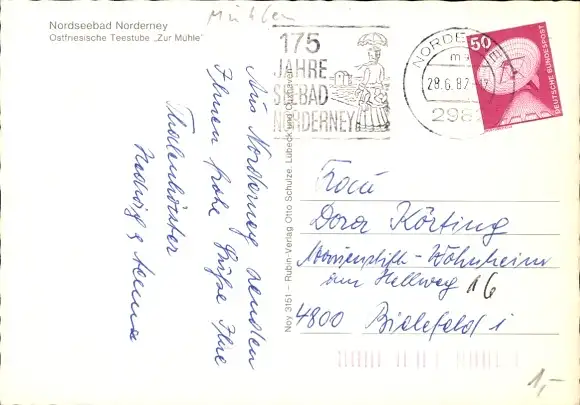 Mühlen
Nordseebad Norderney
Ostfriesische Teestube „Zur Mühle"
175
JAHRE
SEEBAD
NORDERNEY
NORDERNEY
28.6.87
298
50
DEUTSCHE BUNDESPOST
Aus Norderney senden
Ihnen frohe Grüße Ihre
Hedwig & Anna
Noy 3151 – Rubin-Verlag Otto Schulze, Lübeck und Cuxhaven
Frau
Dora Körting
Marienstift-Wohnheim
am Hellweg 16
4800 Bielefeld 1
1,-